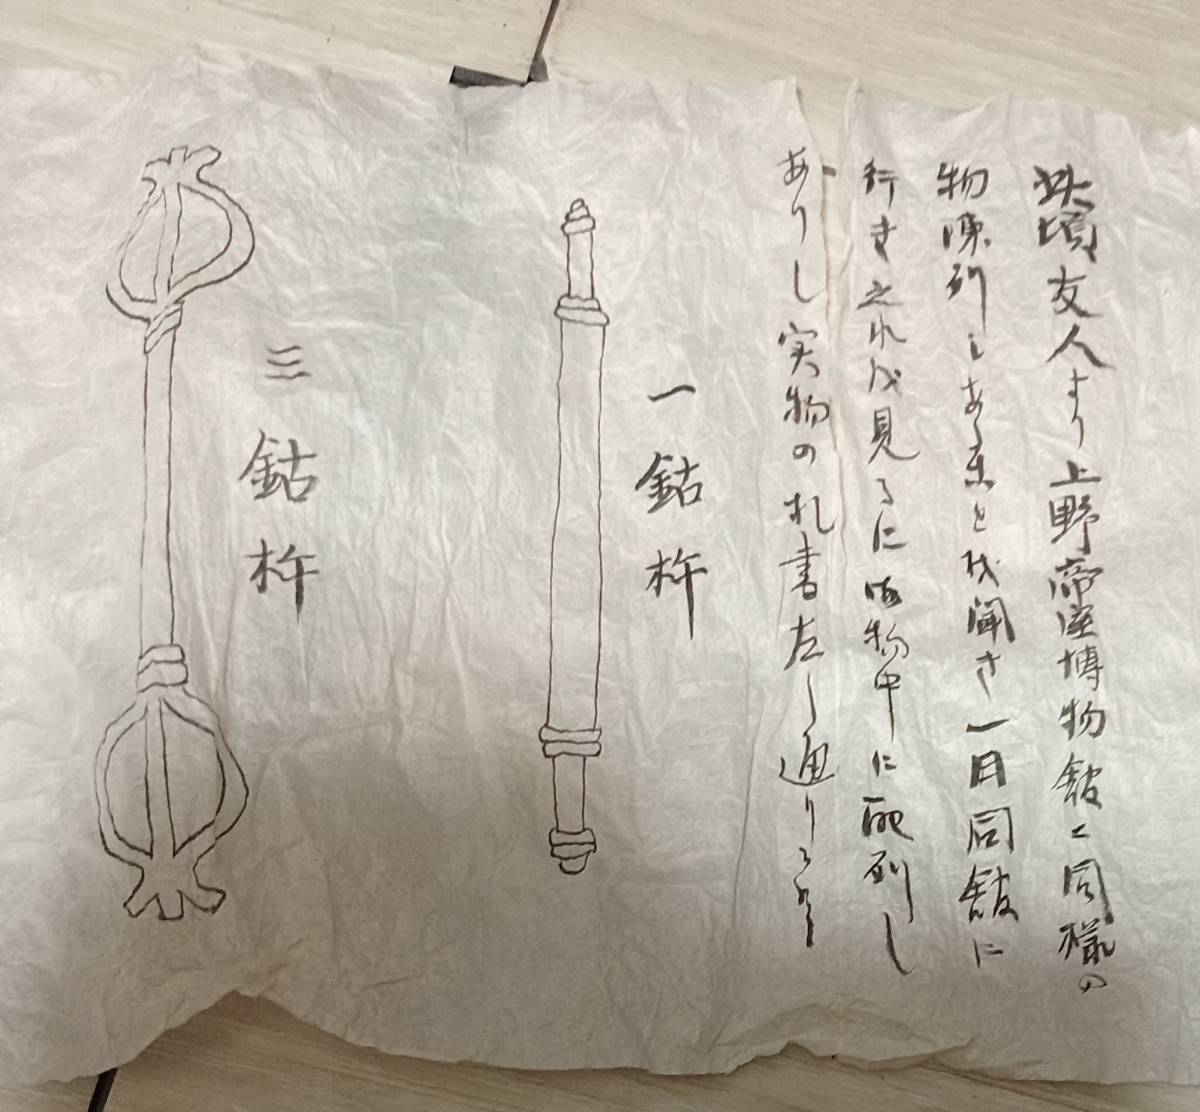 此頃友人より上野帝室博物館に同様の
物陳列しあると聞き一日同館に
行き之れを見るに御物中に配列し
ありし実物の札書左の通りなり
一鈷杵
三鈷杵